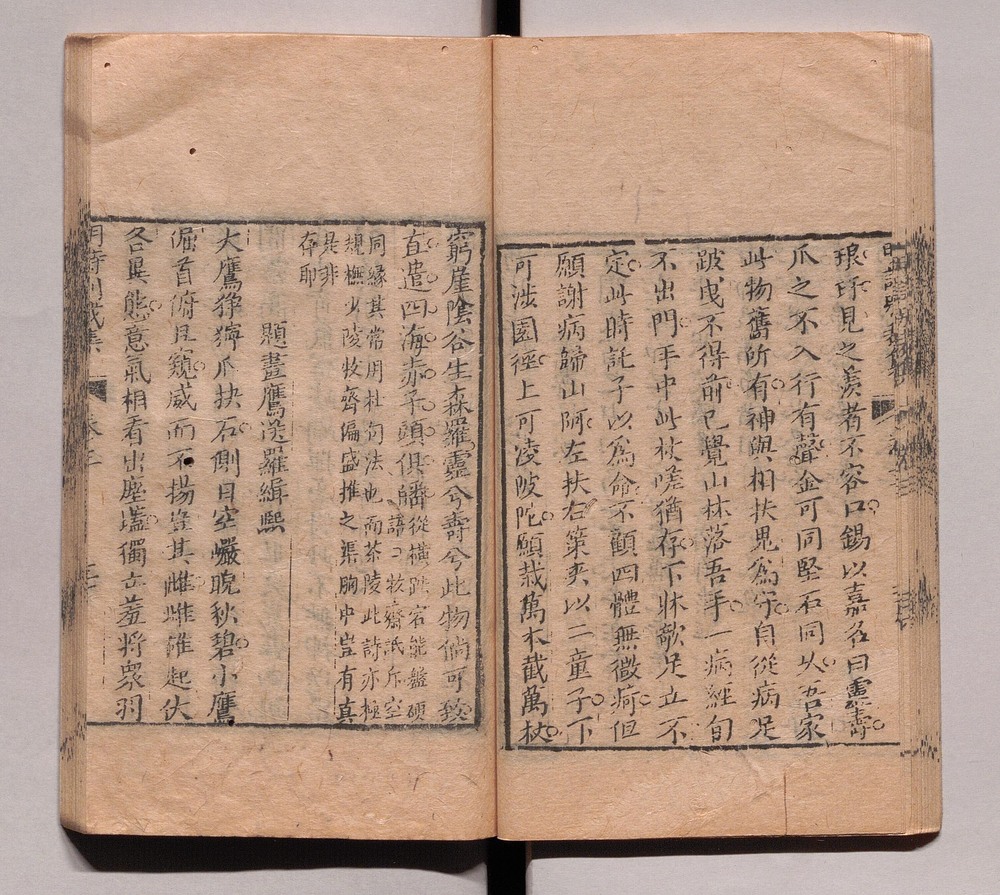 琅玕見之羨者不容口錫以嘉名曰靈壽
爪之不入行有聲金可同堅石同久吾家
此物舊所有神與相扶鬼為守自從病足
跛曳不得前已覺山林落吾手一病經旬
不出門手中此杖嗟猶存下牀欹足立不
定此時託子以為命不顧四體無微痾但
願謝病歸山阿左扶右策夾以二童子下
可涉園徑上可凌陂陀願栽萬木截萬杖
窮崖陰谷生森羅靈兮壽兮此物倘可致
直遣四海赤子頭俱皤
從橫跌宕能盤硬
語牧齋詆斥空
同緣其常用杜句法也而茶陵此詩亦極
規橅少陵牧齋偏盛推之渠胸中豈有真
是非
存耶
題畫鷹送羅緝熙
大鷹猙獰爪抉石側目空巖睨秋碧小鷹
倔首俯且窺威而不揚豈其雌雌雄起伏
各異態意氣相看出塵壒獨立羞將眾羽
明詩別裁集
卷三
明詩別裁集